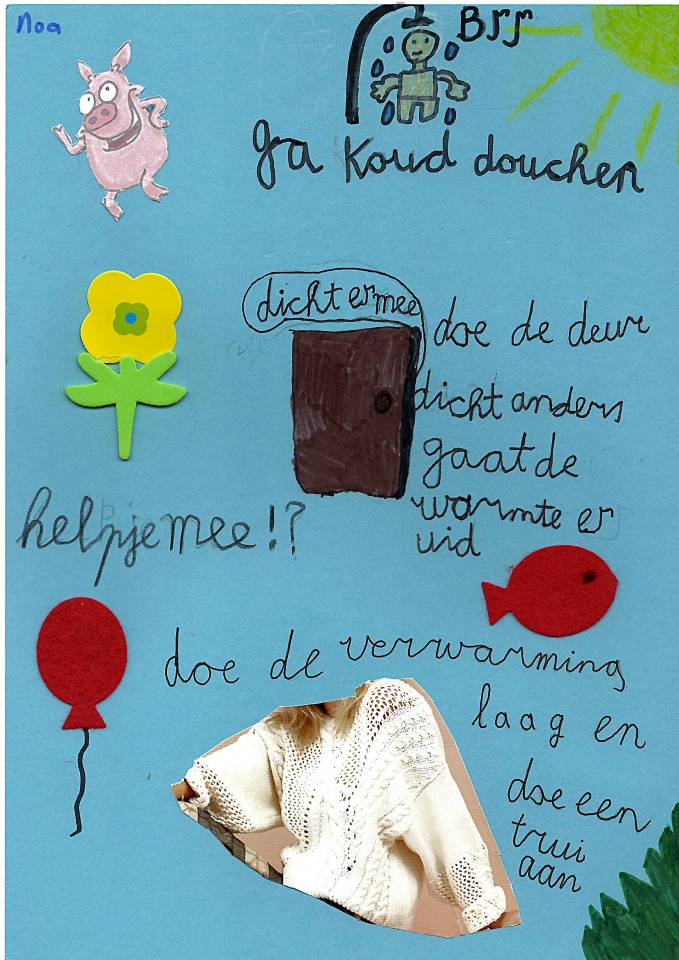 Noa
Brr
ga koud douchen
dicht ermee
doe de deur
dicht anders
gaat de
warmte er
uid
help je mee!?
doe de verwarming
laag en
doe een
trui
aan